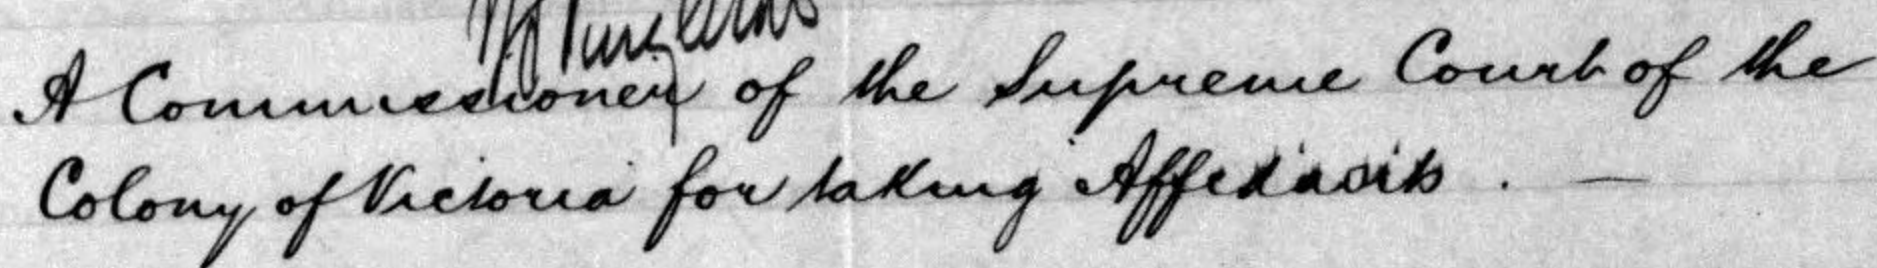 A Commissioner of the Supreme Court of the
Colony of Victoria for taking Affidavits. —